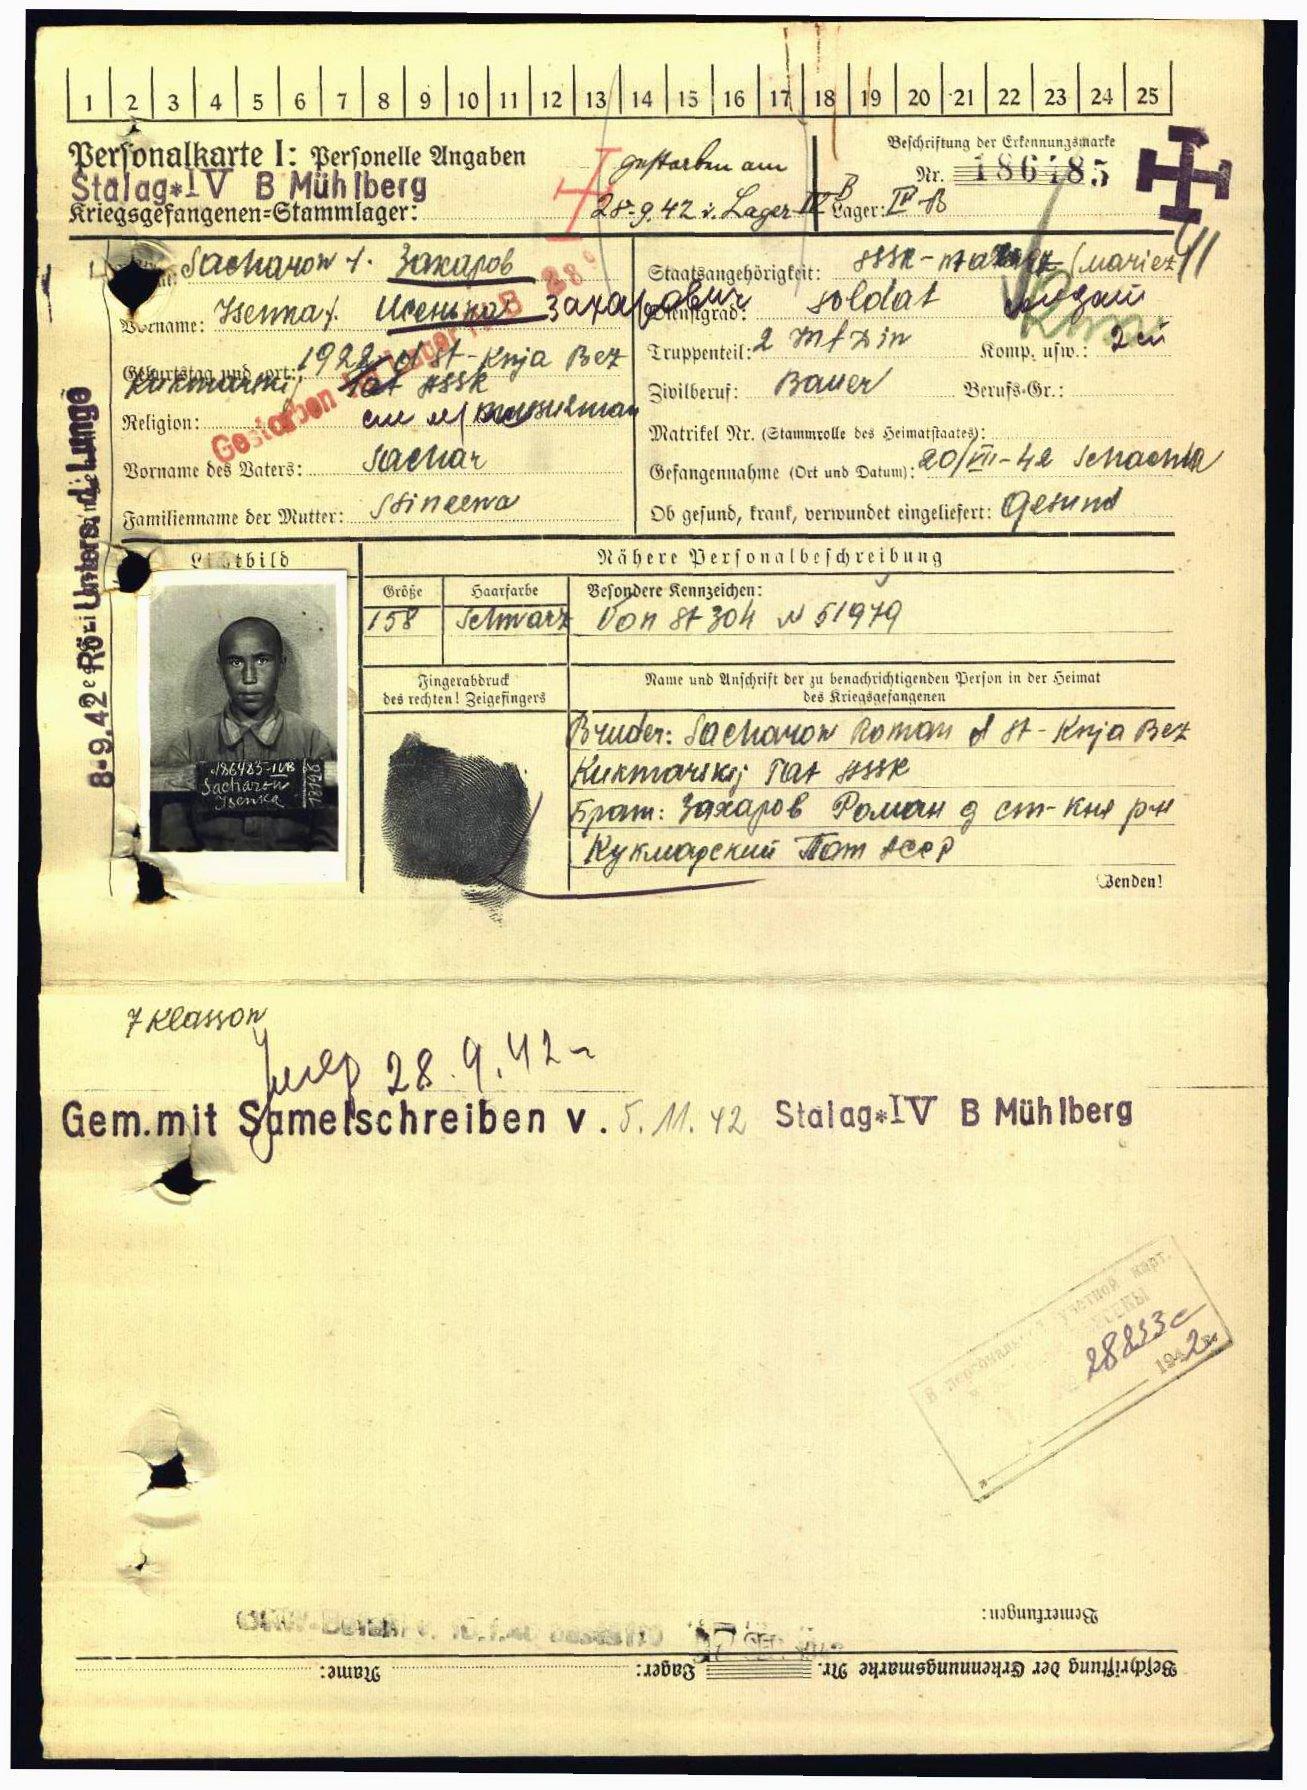 1 2 3 4 5 6 7 8 9 10 11 12 13 14 15 16 17 18 19 20 21 22 23 24 25
Personalkarte I: Personelle Angaben
Stalag*IV B Mühlberg
Kriegsgefangenen-Stammlager:
gestorben am
28.9.42 i. Lager IV B
Beschriftung der Erkennungsmarke
Nr. 186485
Lager: IV B
Sacharow Захаров
Vorname: Isenka Исенька Захарович
Geburtstag und -ort: 1922 d St-Knja Bez
Kukmarskij Tat ASSR
Religion: musulman
Vorname des Vaters: Sachar
Familienname der Mutter:
Gestorben im Lager IV B 28.9
Staatsangehörigkeit: (mariez)
Dienstgrad: Soldat
Truppenteil: 2 Inf Din Komp. usw.: 2
Zivilberuf: Bauer Berufs-Gr.:
Matrikel Nr. (Stammrolle des Heimatstaates):
Gefangennahme (Ort und Datum): 20/VII-42 Schachta
Ob gesund, krank, verwundet eingeliefert: Gesund
8.9.42 Rö.-Unters. d. Lunge
Lichtbild
Nähere Personalbeschreibung
Größe Haarfarbe Besondere Kennzeichen:
158 Schwarz Von St 304 N 51979
186485-IVB
Sacharow
Isenka
Fingerabdruck
des rechten! Zeigefingers
Name und Anschrift der zu benachrichtigenden Person in der Heimat
des Kriegsgefangenen
Bruder: Sacharow Roman d St-Knja Bez
Kukmarskij Tat ASSR
Брат: Захаров Роман д ст-Кня р-н
Кукмарский Тат АССР
Wenden!
7 Klasson
28.9.42
Gem.mit Samelschreiben v. 5.11.42 Stalag*IV B Mühlberg
В персональной учетной карт.
28853с
1942
Bemerkungen:
Beschriftung der Erkennungsmarke Nr. Lager: Name: